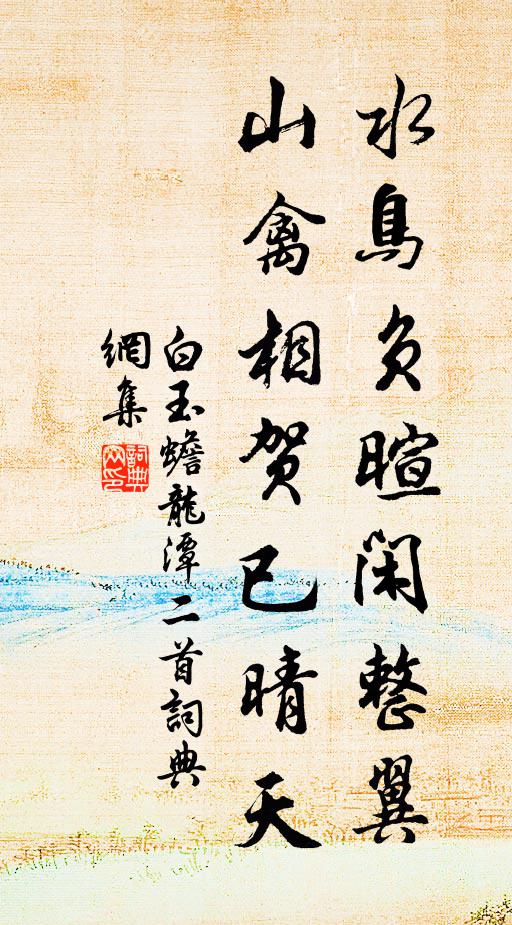 水鳥負暄閑整翼
山禽相賀已晴天
白玉蟾龍潭二首詞典
網集
詞典
网印